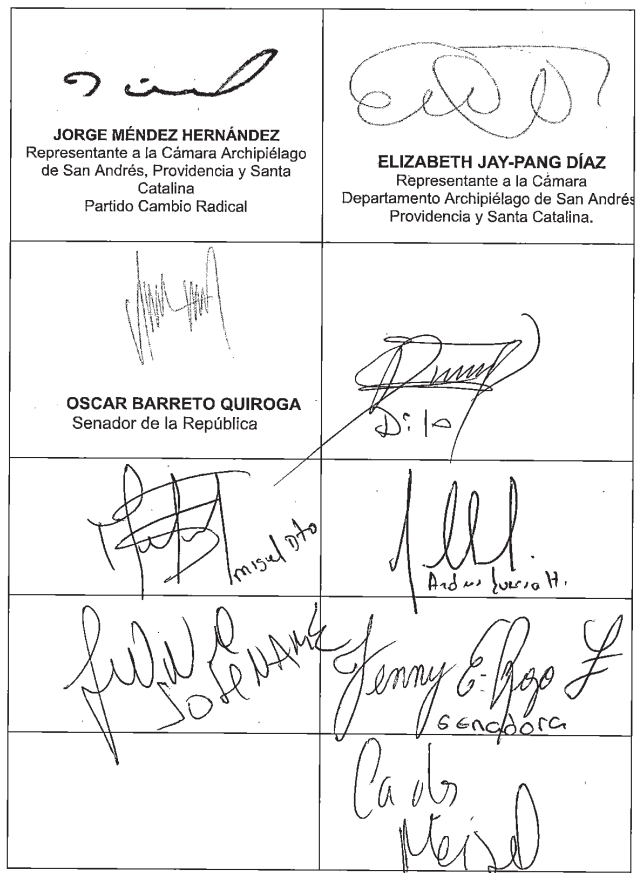 JORGE MÉNDEZ HERNÁNDEZ
Representante a la Cámara Archipiélago
de San Andrés, Providencia y Santa
Catalina
Partido Cambio Radical
ELIZABETH JAY-PANG DÍAZ
Representante a la Cámara
Departamento Archipiélago de San Andrés
Providencia y Santa Catalina.
OSCAR BARRETO QUIROGA
Senador de la República
miguel
Andres Guerra H.
JOSE NAME
Jenny E. Rozo Z
senadora
Carlos
Meisel